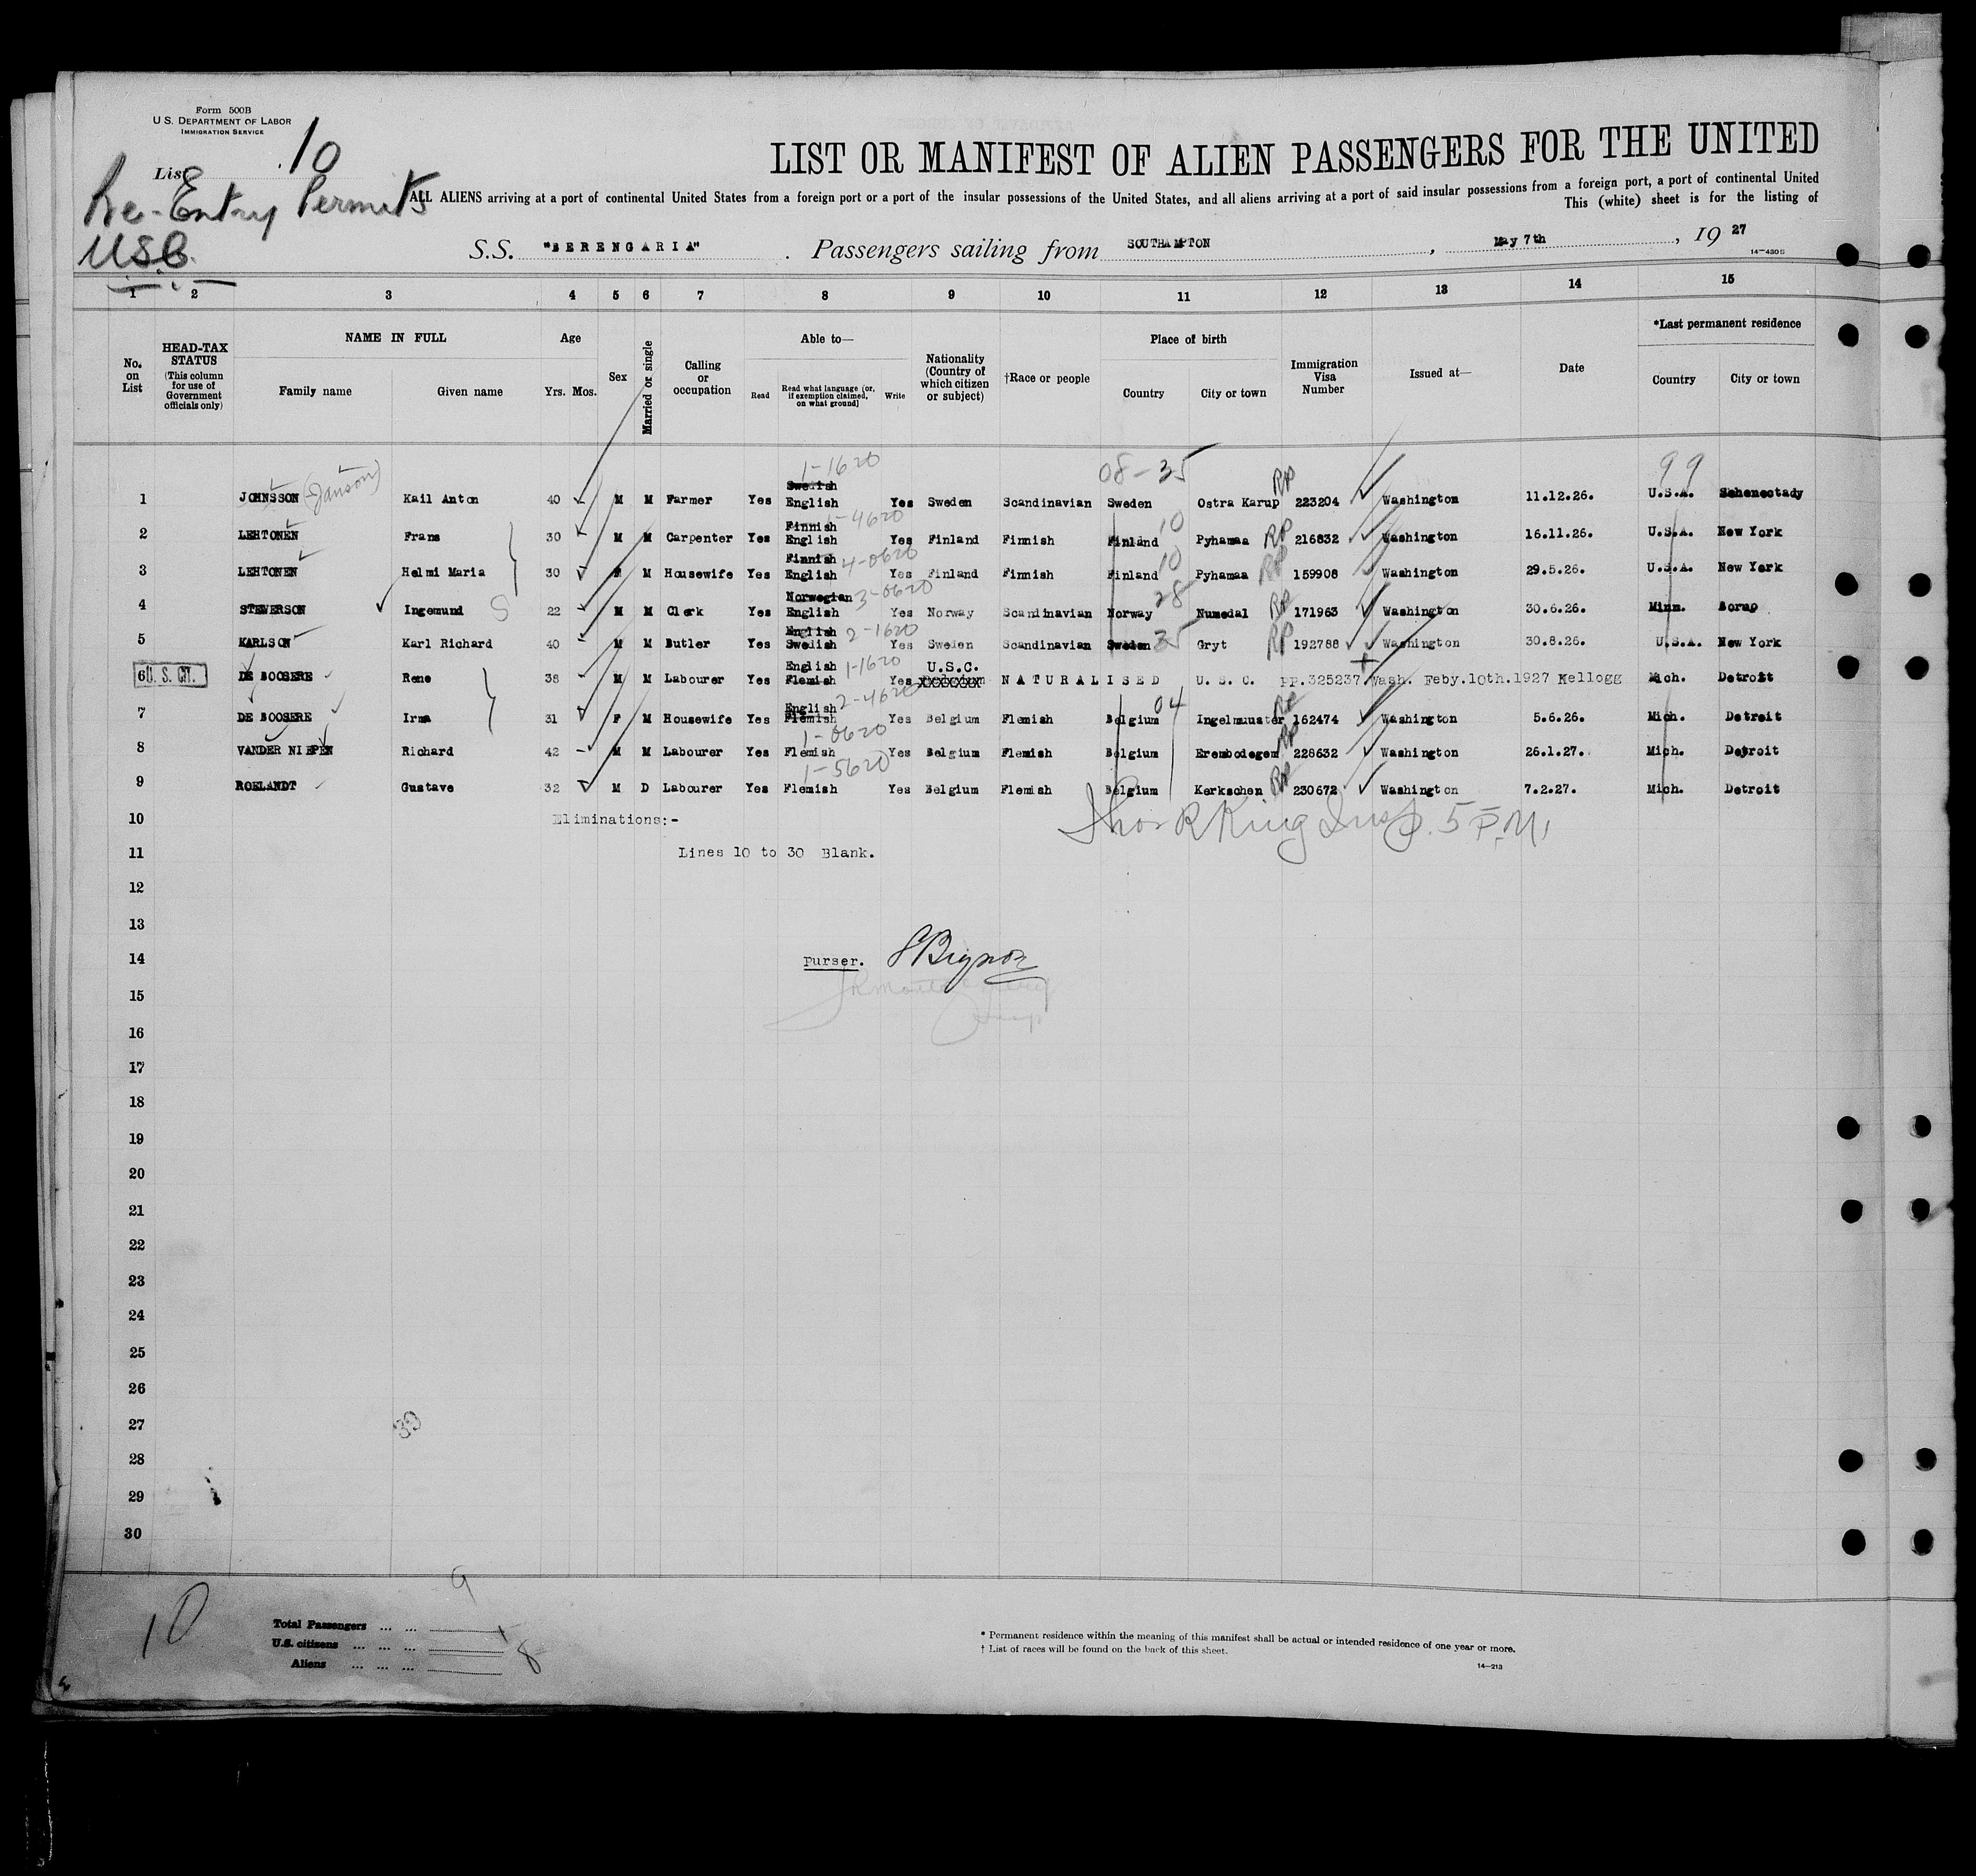 Form 500B
U.S. DEPARTMENT OF LABOR
IMMIGRATION SERVICE
List 10
Re-Entry Permits
U.S.C.
LIST OR MANIFEST OF ALIEN PASSENGERS FOR THE UNITED
ALL ALIENS arriving at a port of continental United States from a foreign port or a port of the insular possessions of the United States, and all aliens arriving at a port of said insular possessions from a foreign port, a port of continental United
This (white) sheet is for the listing of
S.S. "BERENGARIA" . Passengers sailing from SOUTHAMPTON , May 7th , 19 27
14—430S
1 2 3 4 5 6 7 8 9 10 11 12 13 14 15
No. on List
HEAD-TAX STATUS (This column for use of Government officials only)
NAME IN FULL Family name Given name
Age Yrs. Mos.
Sex
Married or single
Calling or occupation
Able to— Read Read what language (or, if exemption claimed, on what ground) Write
Nationality (Country of which citizen or subject)
†Race or people
Place of birth Country City or town
Immigration Visa Number
Issued at—
Date
*Last permanent residence Country City or town
1-1620 08-35 99
1 JOHNSSON (Janson) Kail Anton 40 M M Farmer Yes Swedish English Yes Sweden Scandinavian Sweden Ostra Karup RP 223204 Washington 11.12.26. U.S.A. Schenectady
2 LEHTONEN Frans 30 M M Carpenter Yes Finnish English 1-4620 Yes Finland Finnish Finland 10 Pyhamaa RP 216832 Washington 16.11.26. U.S.A. New York
3 LEHTONEN Helmi Maria 30 F M Housewife Yes Finnish English 4-0620 Yes Finland Finnish Finland 10 Pyhamaa RP 159908 Washington 29.5.26. U.S.A. New York
4 STEWERSON Ingemund S 22 M M Clerk Yes Norwegian English 3-0620 Yes Norway Scandinavian Norway 28 Numedal RP 171963 Washington 30.6.26. Minn. Borup
5 KARLSON Karl Richard 40 M M Butler Yes English Swedish 2-1620 Yes Sweden Scandinavian Sweden 35 Gryt RP 192788 Washington 30.8.26. U.S.A. New York
6 U.S. CIT. DE BOOSERE Rene 38 M M Labourer Yes English Flemish 1-1620 Yes U.S.C. NATURALISED U.S.C. pp.325237 Wash. Feby.10th.1927 Kellogg Mich. Detroit
7 DE BOOSERE Irma 31 F M Housewife Yes English Flemish 2-4620 Yes Belgium Flemish Belgium 04 Ingelmunster RP 162474 Washington 5.6.26. Mich. Detroit
8 VANDER NIEPEN Richard 42 M M Labourer Yes Flemish 1-0620 Yes Belgium Flemish Belgium Erembodegem RP 228632 Washington 26.1.27. Mich. Detroit
9 ROELANDT Gustave 32 M D Labourer Yes Flemish 1-5620 Yes Belgium Flemish Belgium Kerkschen RP 230672 Washington 7.2.27. Mich. Detroit
10 Eliminations:- Thos R King Insp. 5 P.M.
11 Lines 10 to 30 Blank.
12
13
14 Purser. Bignor
15
16
17
18
19
20
21
22
23
24
25
26
27 30
28
29
30
10
Total Passengers ... ... 9
U.S. citizens ... ... ... 1
Aliens ... ... ... 8
* Permanent residence within the meaning of this manifest shall be actual or intended residence of one year or more.
† List of races will be found on the back of this sheet.
14—213